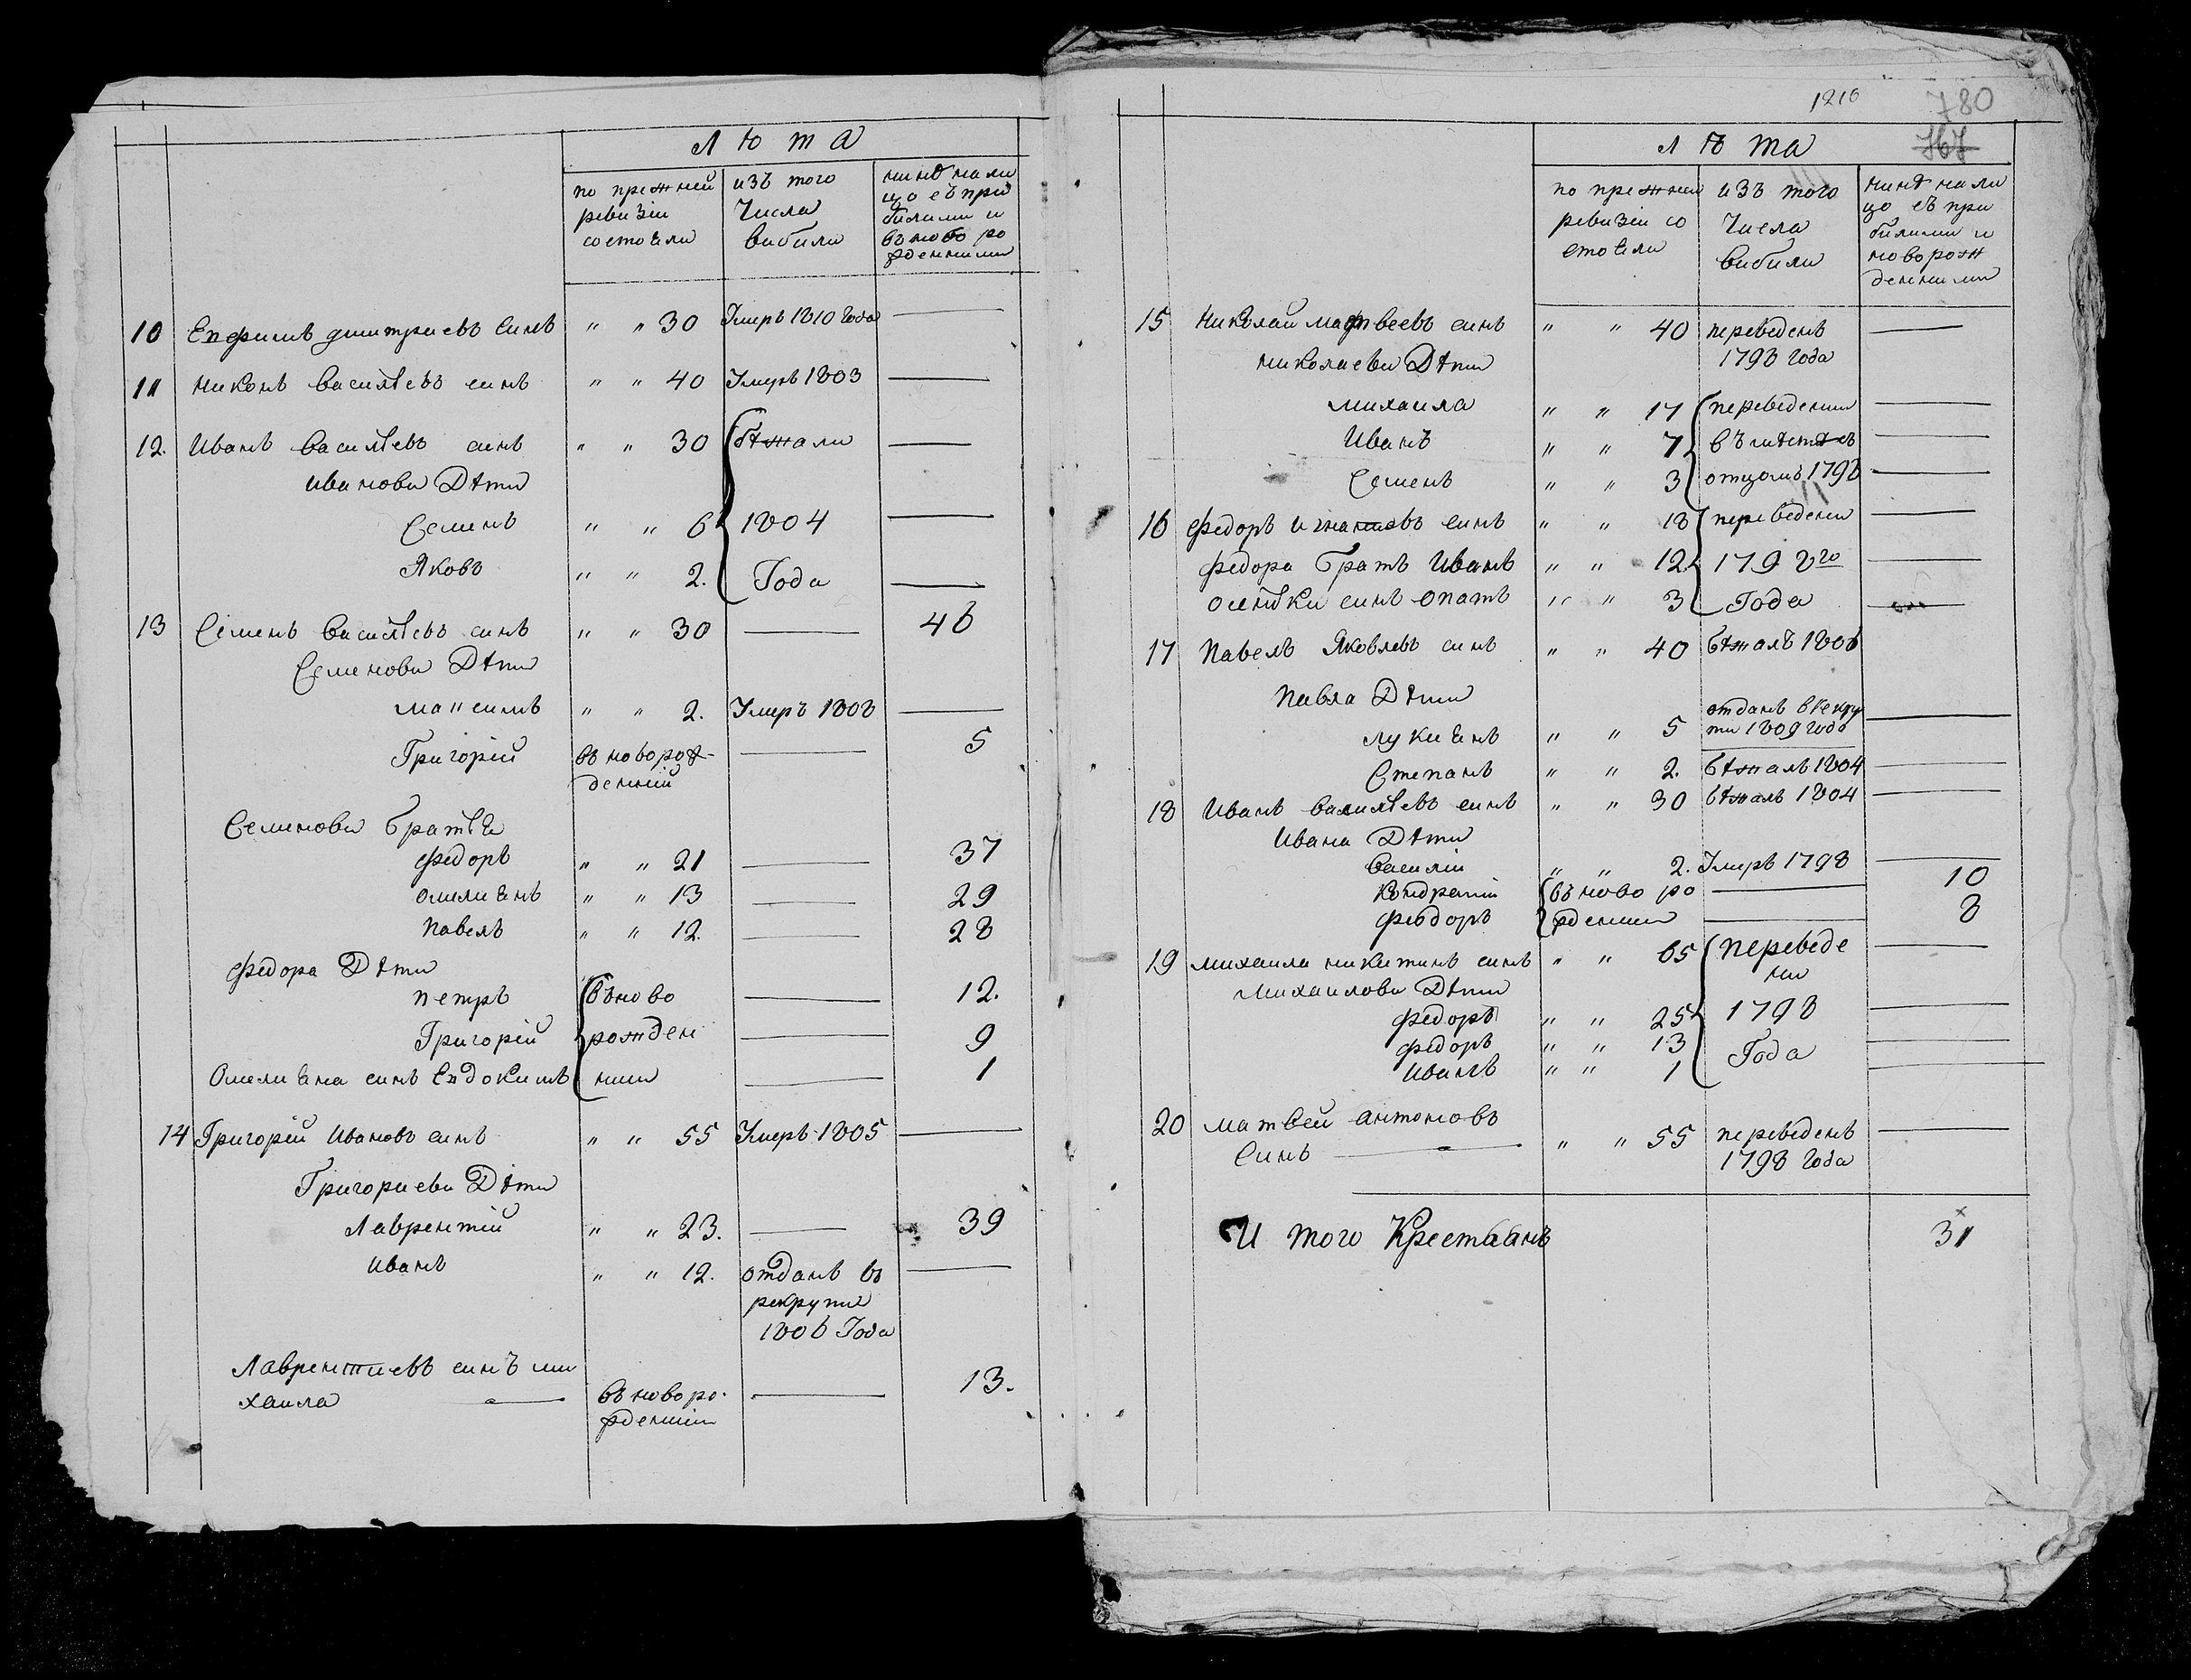 Лѣта
по прежней ревизіи состоѣли | изъ того числа вибили | нинѣ на лицо съ прибилими и въново рожденними
10 Ефимъ дмитриевъ синъ " " 30 Умеръ 1810 Года —
11 Никонъ васильевъ синъ " " 40 Умеръ 1803 —
12. Иванъ васильевъ синъ " " 30 бѣжали —
Иванови Дѣти
Семенъ " " 6 1804 —
Яковъ " " 2. Года —
13 Семенъ васильевъ синъ " " 30 — 46
Семенови Дѣти
максимъ " " 2. Умеръ 1808 —
Григорій въ новорожденній — 5
Семенови Братьѣ
Федоръ " " 21 — 37
Омелиѣнъ " " 13 — 29
Павелъ " " 12. — 28
Федора Дѣти
Петръ въ ново — 12.
Григорій рожден — 9
Омелиѣна синъ Евдокимъ ния — 1
14 Григорій Ивановъ синъ " " 55 Умеръ 1805 —
Григориеви Дѣти
Лаврентій " " 23. — 39
Иванъ " " 12. отданъ въ —
рекрути
1806 Года
Лаврентиевъ синъ ми
хаила — въ новоро — 13.
жденніи
1216 780
767
Лѣта
по прежней ревизіи состоѣли | изъ того числа вибили | нинѣ на лицо съ прибилими и новорожденними
15 Николай матвеевъ синъ " " 40 переведенъ —
1798 года
Николаеви Дѣти
михаила " " 17 переведени —
Иванъ " " 7 въмѣстѣ съ —
Семенъ " " 3 отцомъ 1798 —
16 Федоръ Игнатовъ синъ " " 18 переведени —
Федора Братъ Иванъ " " 12. 1798го —
синъ " " 3 Года —
17 Павелъ Яковлевъ синъ " " 40 бѣжалъ 1806
Павла Дѣти
Лукиѣнъ " " 5 отданъ в рекру —
ти 1809 года
Степанъ " " 2. бѣжалъ 1804 —
18 Иванъ васильевъ синъ " " 30 бѣжалъ 1804 —
Ивана Дѣти
Василій " " 2. Умеръ 1798 —
Кондратій въ ново ро — 10
Феодоръ ждении — 8
19 михаила никитинъ синъ " " 65 переведе —
ни
Михаилови Дѣти
Федоръ " " 25 1798 —
Федоръ " " 13 Года —
Иванъ " " 1 —
20 матвей антоновъ
Синъ — " " 55 переведенъ —
1798 Года
И того Крестьѣнъ 31